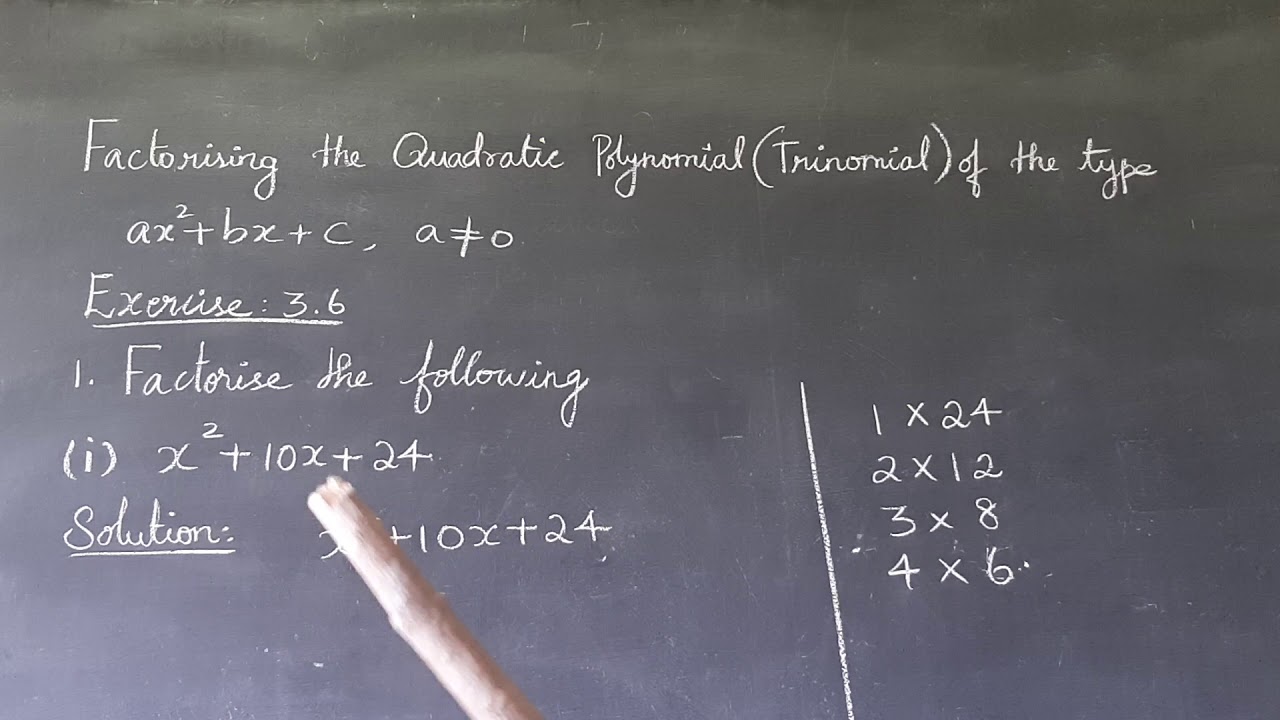 Factorising the Quadratic Polynomial (Trinomial) of the type
ax²+bx+c, a≠0
Exercise: 3.6
1. Factorise the following
(i) x²+10x+24
Solution: x +10x+24
1 × 24
2 × 12
3 × 8
4 × 6